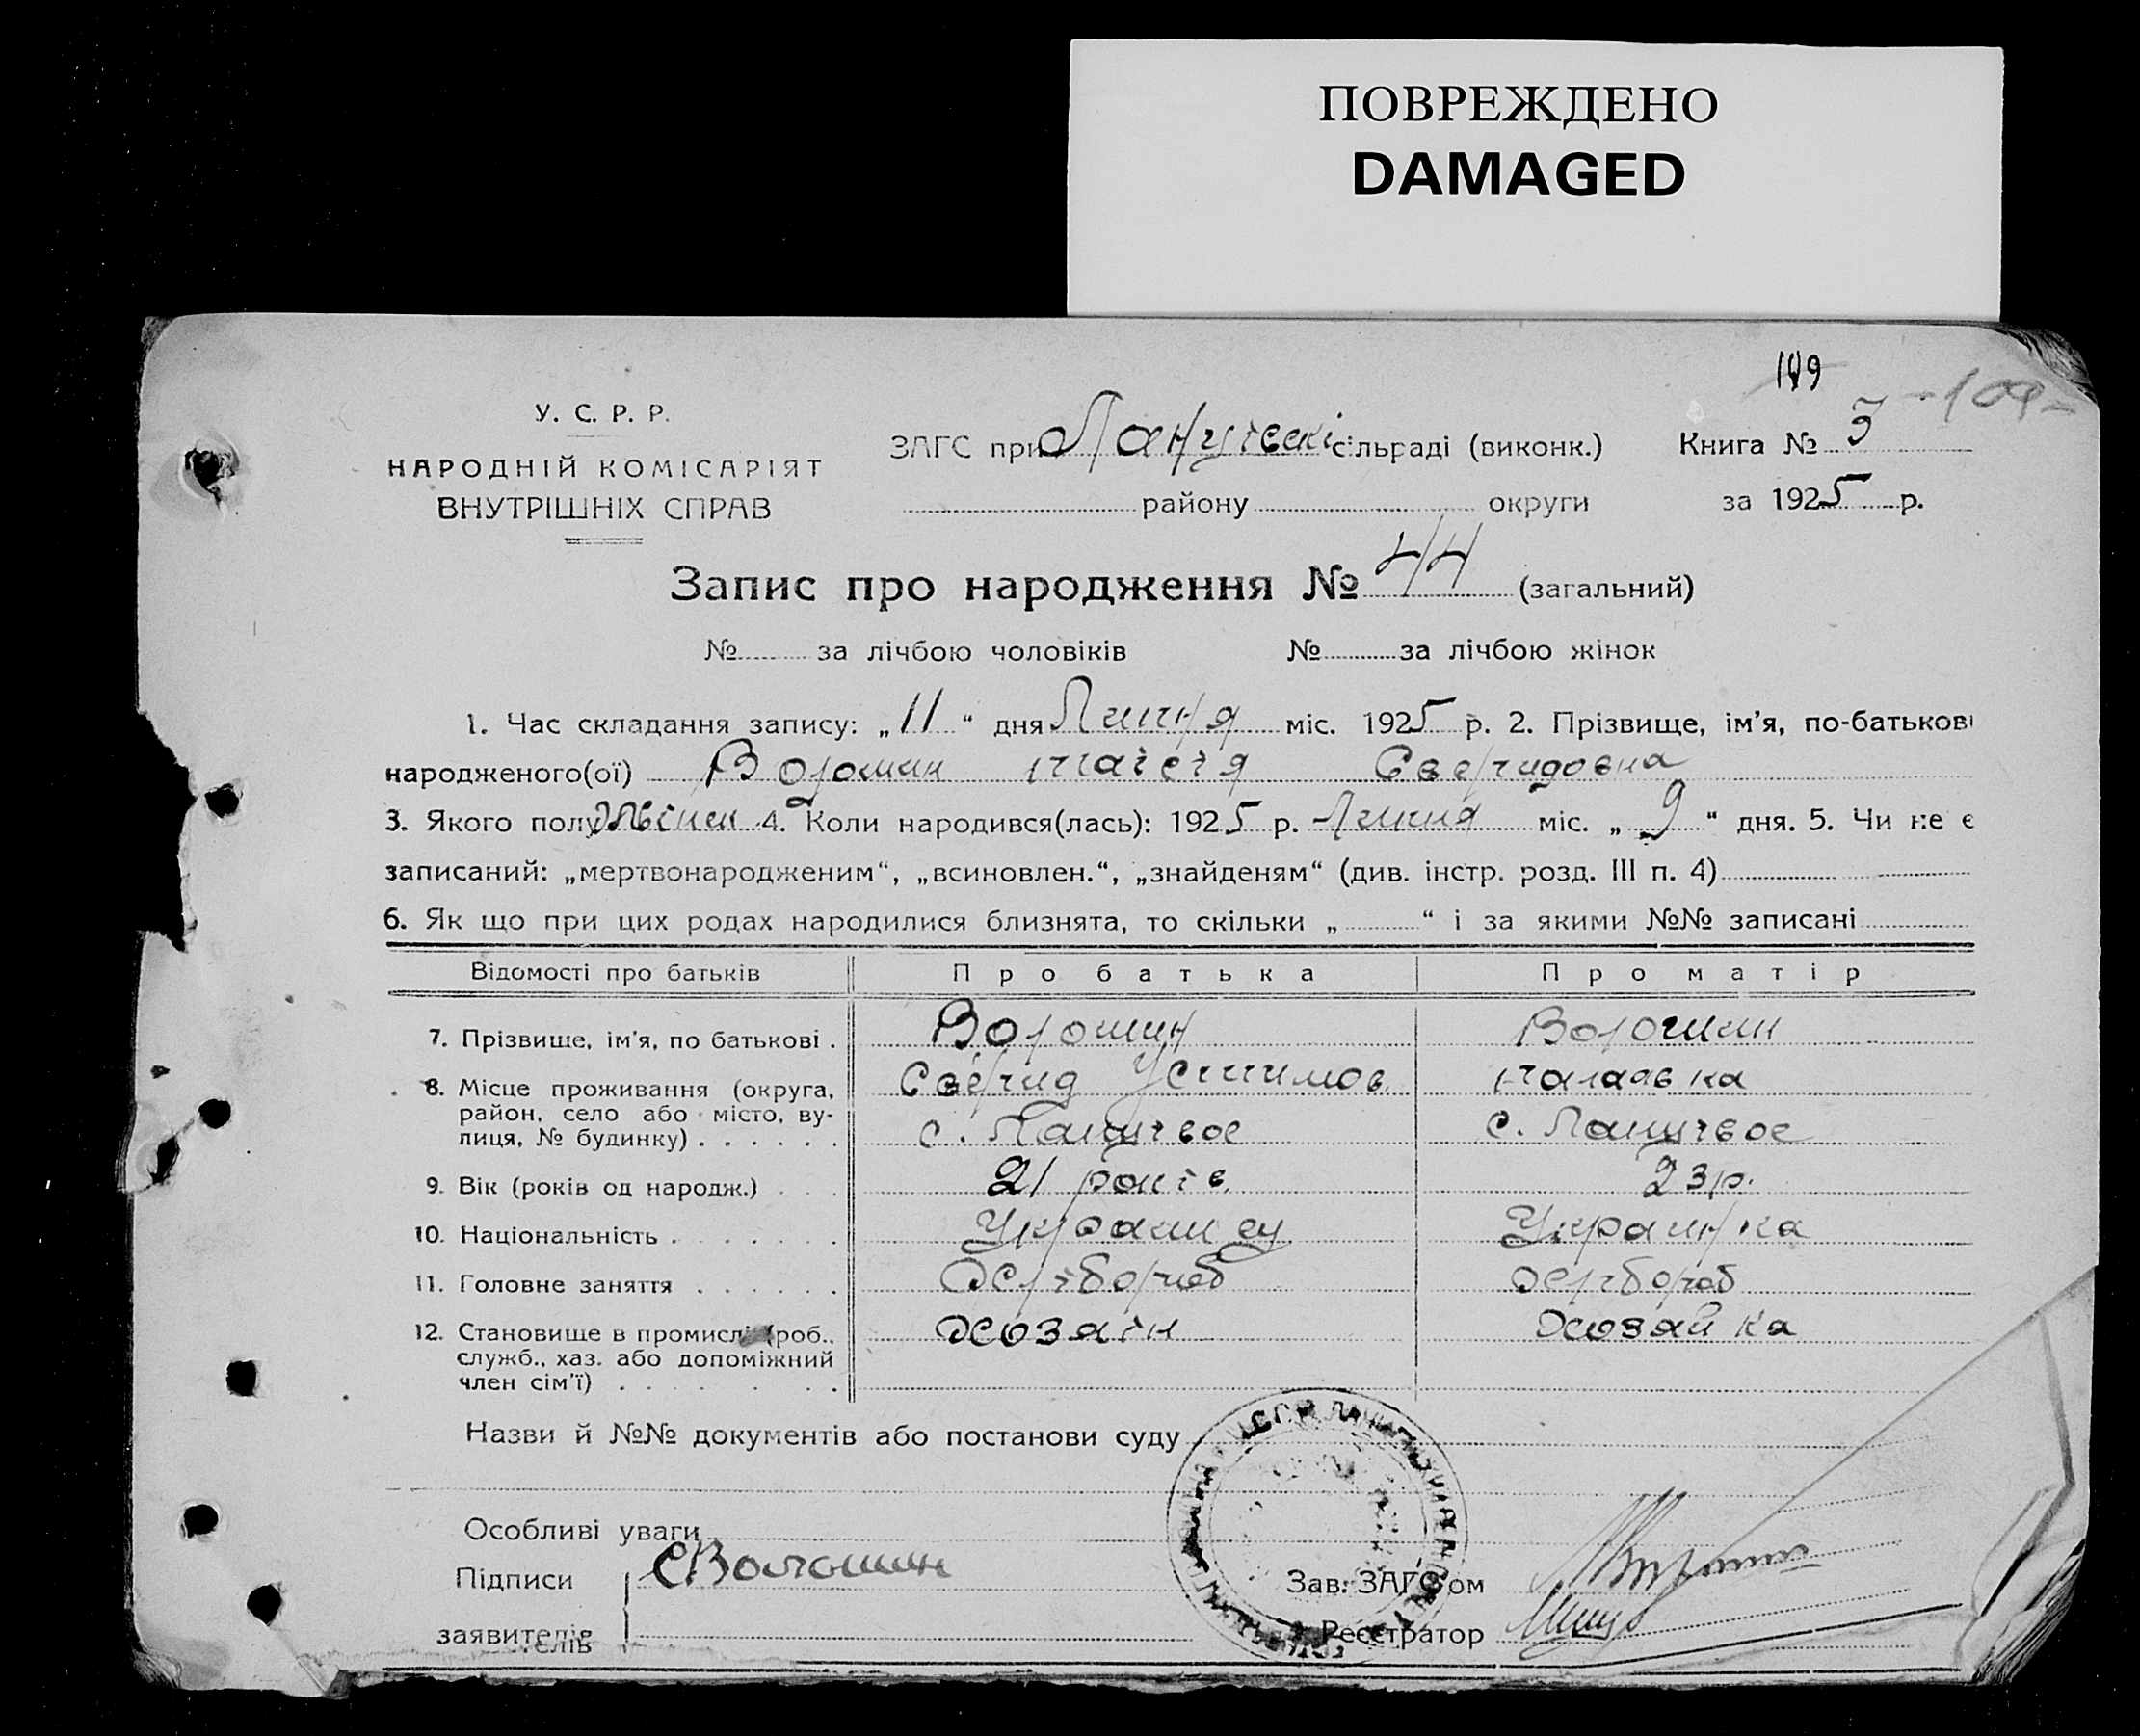 ПОВРЕЖДЕНО
DAMAGED
109
-109-
У. С. Р. Р.
НАРОДНІЙ КОМІСАРІЯТ
ВНУТРІШНІХ СПРАВ
ЗАГС при сільраді (виконк.)
району округи
Книга № 3
за 1925 р.
Запис про народження № 44 (загальний)
№ за лічбою чоловіків № за лічбою жінок
1. Час складання запису: „11“ дня Липня міс. 1925 р. 2. Прізвище, ім’я, по-батькові
народженого(ої) Волошин
3. Якого полу 4. Коли народився(лась): 1925 р. Липня міс. „9“ дня. 5. Чи не є
записаний: „мертвонародженим“, „всиновлен.“, „знайденям“ (див. інстр. розд. III п. 4)
6. Як що при цих родах народилися близнята, то скільки „ “ і за якими №№ записані
Відомості про батьків Про батька Про матір
7. Прізвище, ім’я, по батькові . Волошин Волошин
8. Місце проживання (округа, район, село або місто, вулиця, № будинку) . . . . . . с. с.
9. Вік (років од народж.) . . . 21 років 23 р.
10. Національність . . . . . . . Українец Українка
11. Головне заняття . . . . . . Хлібороб Хлібороб
12. Становище в промислі (роб., служб., хаз. або допоміжний член сім’ї) . . . . . . Хозяїн Хозяйка
Назви й №№ документів або постанови суду
Особливі уваги
Підписи СВолошин Зав. ЗАГС’ом
заявителів Реєстратор